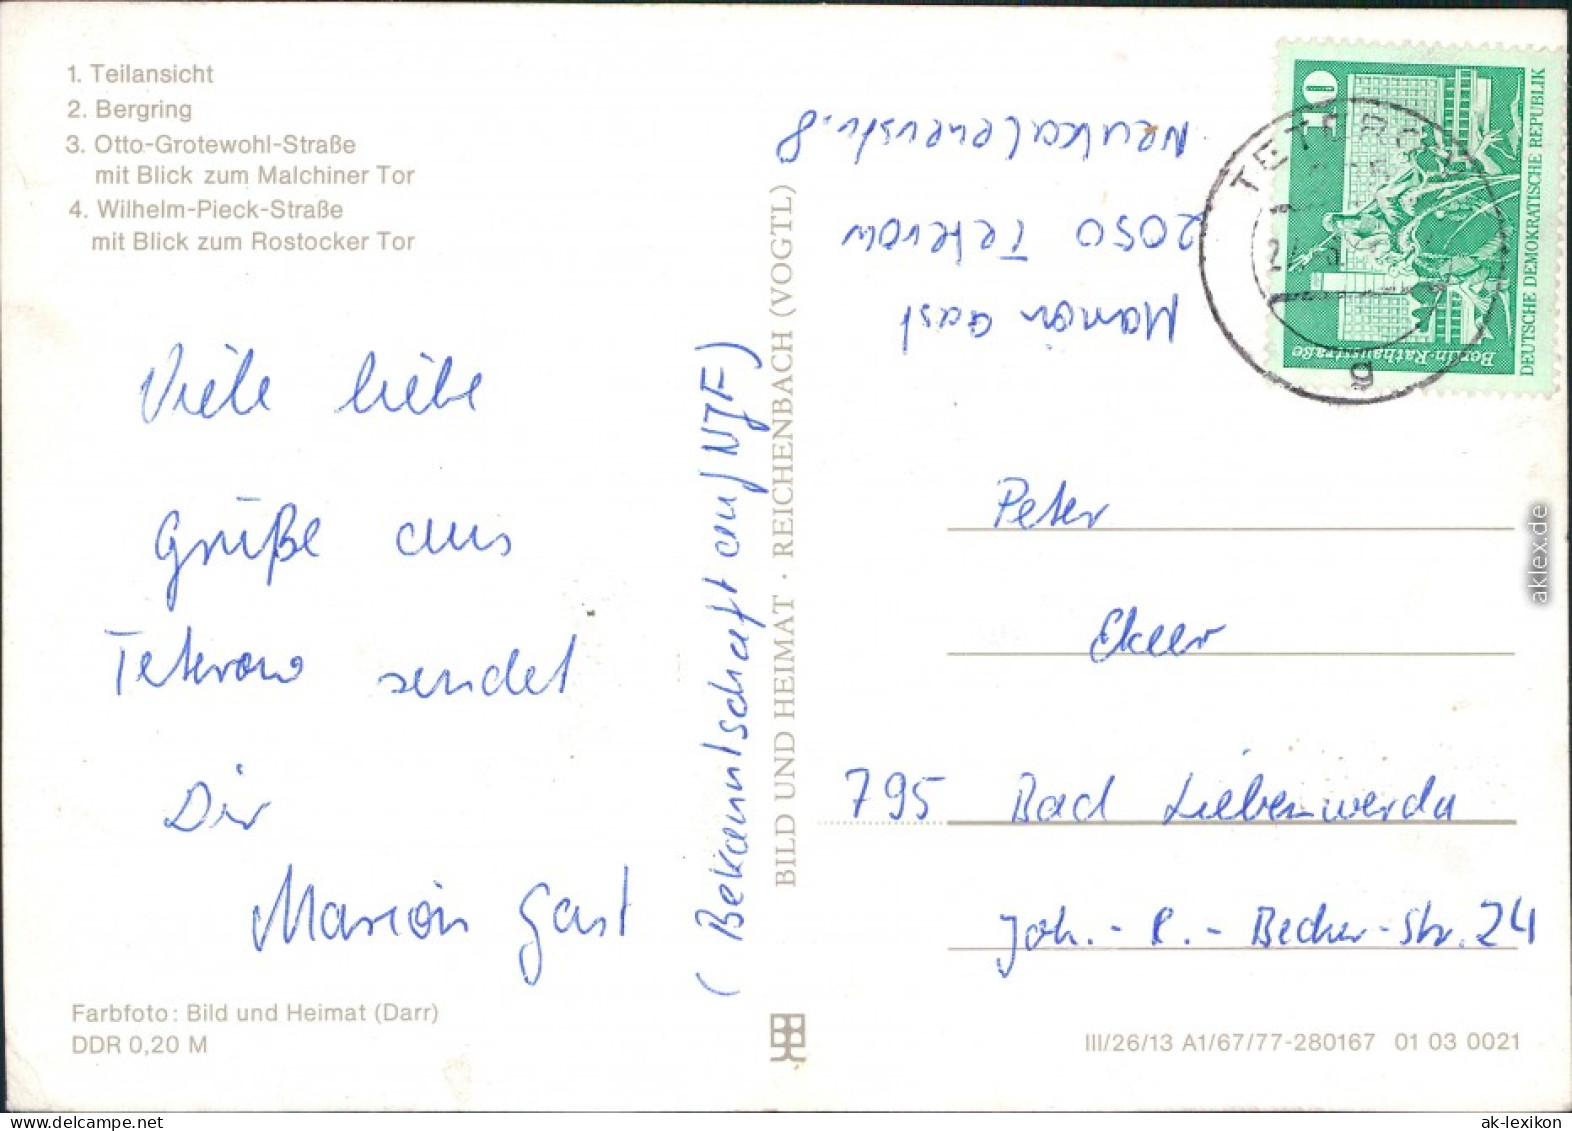 1. Teilansicht
2. Bergring
3. Otto-Grotewohl-Straße
mit Blick zum Malchiner Tor
4. Wilhelm-Pieck-Straße
mit Blick zum Rostocker Tor
Viele liebe
Grüße aus
Teterow sendet
Dir
Marion Gast
(Bekanntschaft auf NJF)
Farbfoto: Bild und Heimat (Darr)
DDR 0,20 M
BILD UND HEIMAT · REICHENBACH (VOGTL)
Marion Gast
2050 Teterow
Neukalenerstr. 8
10
Berlin-Rathausstraße
DEUTSCHE DEMOKRATISCHE REPUBLIK
TETEROW
g
Peter
795 Bad Liebenwerda
Joh.-R.-Becher-Str. 24
III/26/13 A1/67/77-280167 01 03 0021
aklex.de
ak-lexikon